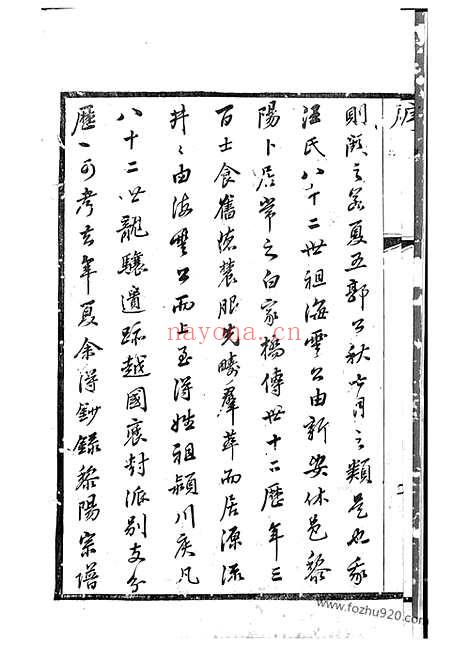 序
則闕之若夏五郭公秋七月之類是也我
汪氏八十二世祖海雲公由新安休邑黎
陽卜居常之白家橋傳世十二歷年三
百士食舊德農服先疇羣萃而居源流
井井由海雲公而上至得姓祖潁川侯凡
八十二世龍驤遺跡越國褒封派別支分
歷一可考去年夏余得鈔錄黎陽宗譜
nayona.cn
www.fozhu920.com